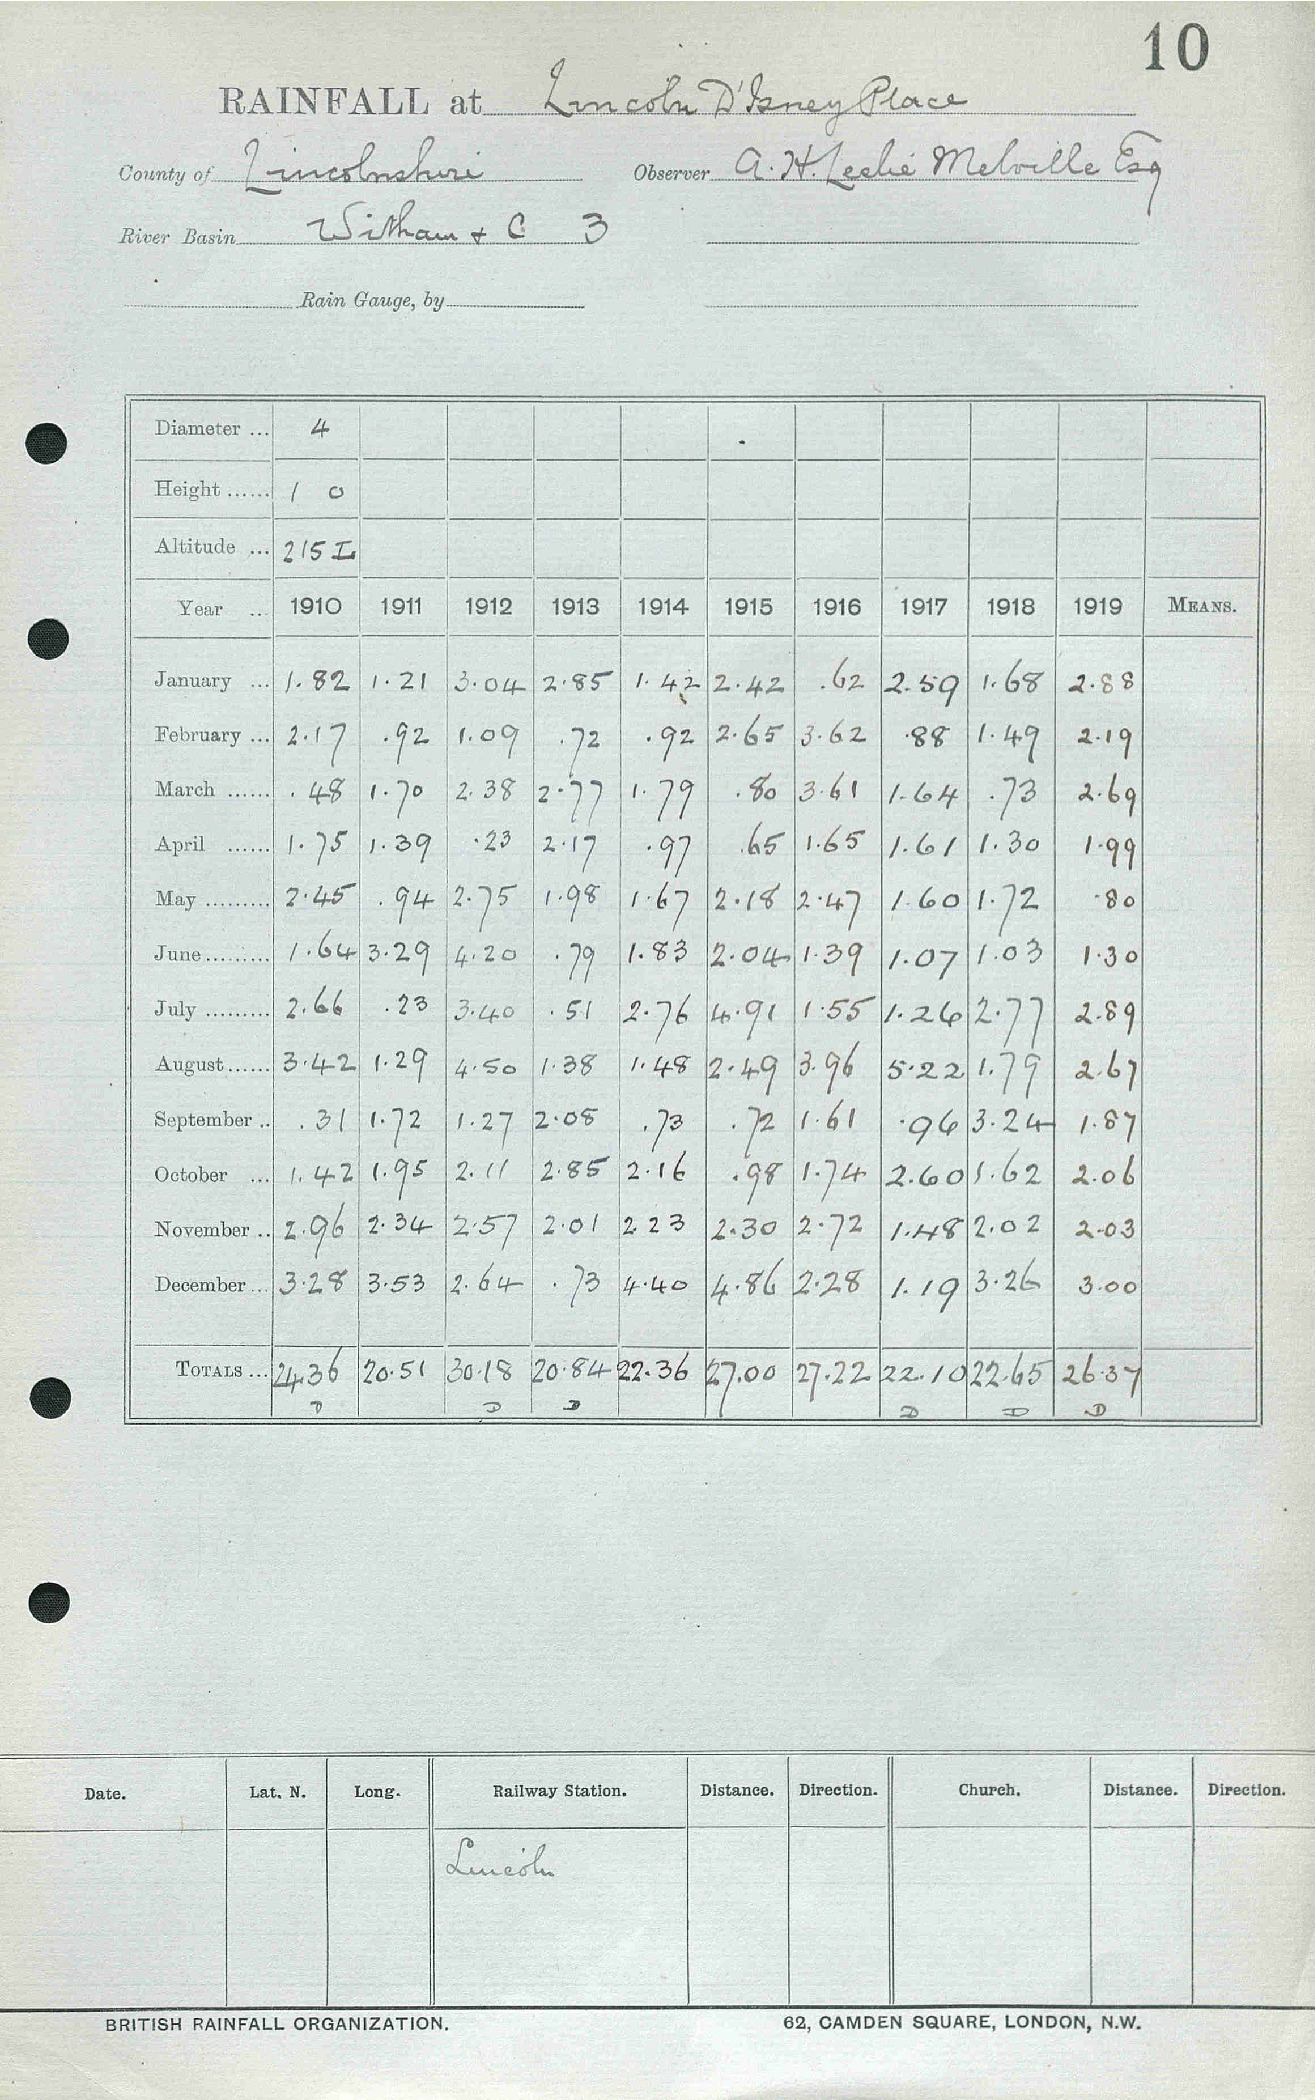 10
RAINFALL at Lincoln D'Isney Place
County of Lincolnshire Observer A. H. Leslie Melville Esq
River Basin Witham & C 3
Rain Gauge, by
Diameter ... 4
Height ...... 1 0
Altitude ... 215 I
Year ... 1910 1911 1912 1913 1914 1915 1916 1917 1918 1919 MEANS.
January ... 1.82 1.21 3.04 2.85 1.42 2.42 .62 2.59 1.68 2.88
February ... 2.17 .92 1.09 .72 .92 2.65 3.62 .88 1.49 2.19
March ...... .48 1.70 2.38 2.77 1.79 .80 3.61 1.64 .73 2.69
April ...... 1.75 1.39 .23 2.17 .97 .65 1.65 1.61 1.30 1.99
May ......... 2.45 .94 2.75 1.98 1.67 2.18 2.47 1.60 1.72 .80
June ......... 1.64 3.29 4.20 .79 1.83 2.04 1.39 1.07 1.03 1.30
July ......... 2.66 .23 3.40 .51 2.76 4.91 1.55 1.26 2.77 2.89
August ...... 3.42 1.29 4.50 1.38 1.48 2.49 3.96 5.22 1.79 2.67
September .. .31 1.72 1.27 2.08 .73 .72 1.61 .96 3.24 1.87
October ... 1.42 1.95 2.11 2.85 2.16 .98 1.74 2.60 1.62 2.06
November .. 2.96 2.34 2.57 2.01 2 23 2.30 2.72 1.48 2.02 2.03
December ... 3.28 3.53 2.64 .73 4.40 4.86 2.28 1.19 3.26 3.00
TOTALS ... 24.36 20.51 30.18 20.84 22.36 27.00 27.22 22.10 22.65 26.37
D D D D D D
Date. Lat. N. Long. Railway Station. Distance. Direction. Church. Distance. Direction.
Lincoln
BRITISH RAINFALL ORGANIZATION. 62, CAMDEN SQUARE, LONDON, N.W.